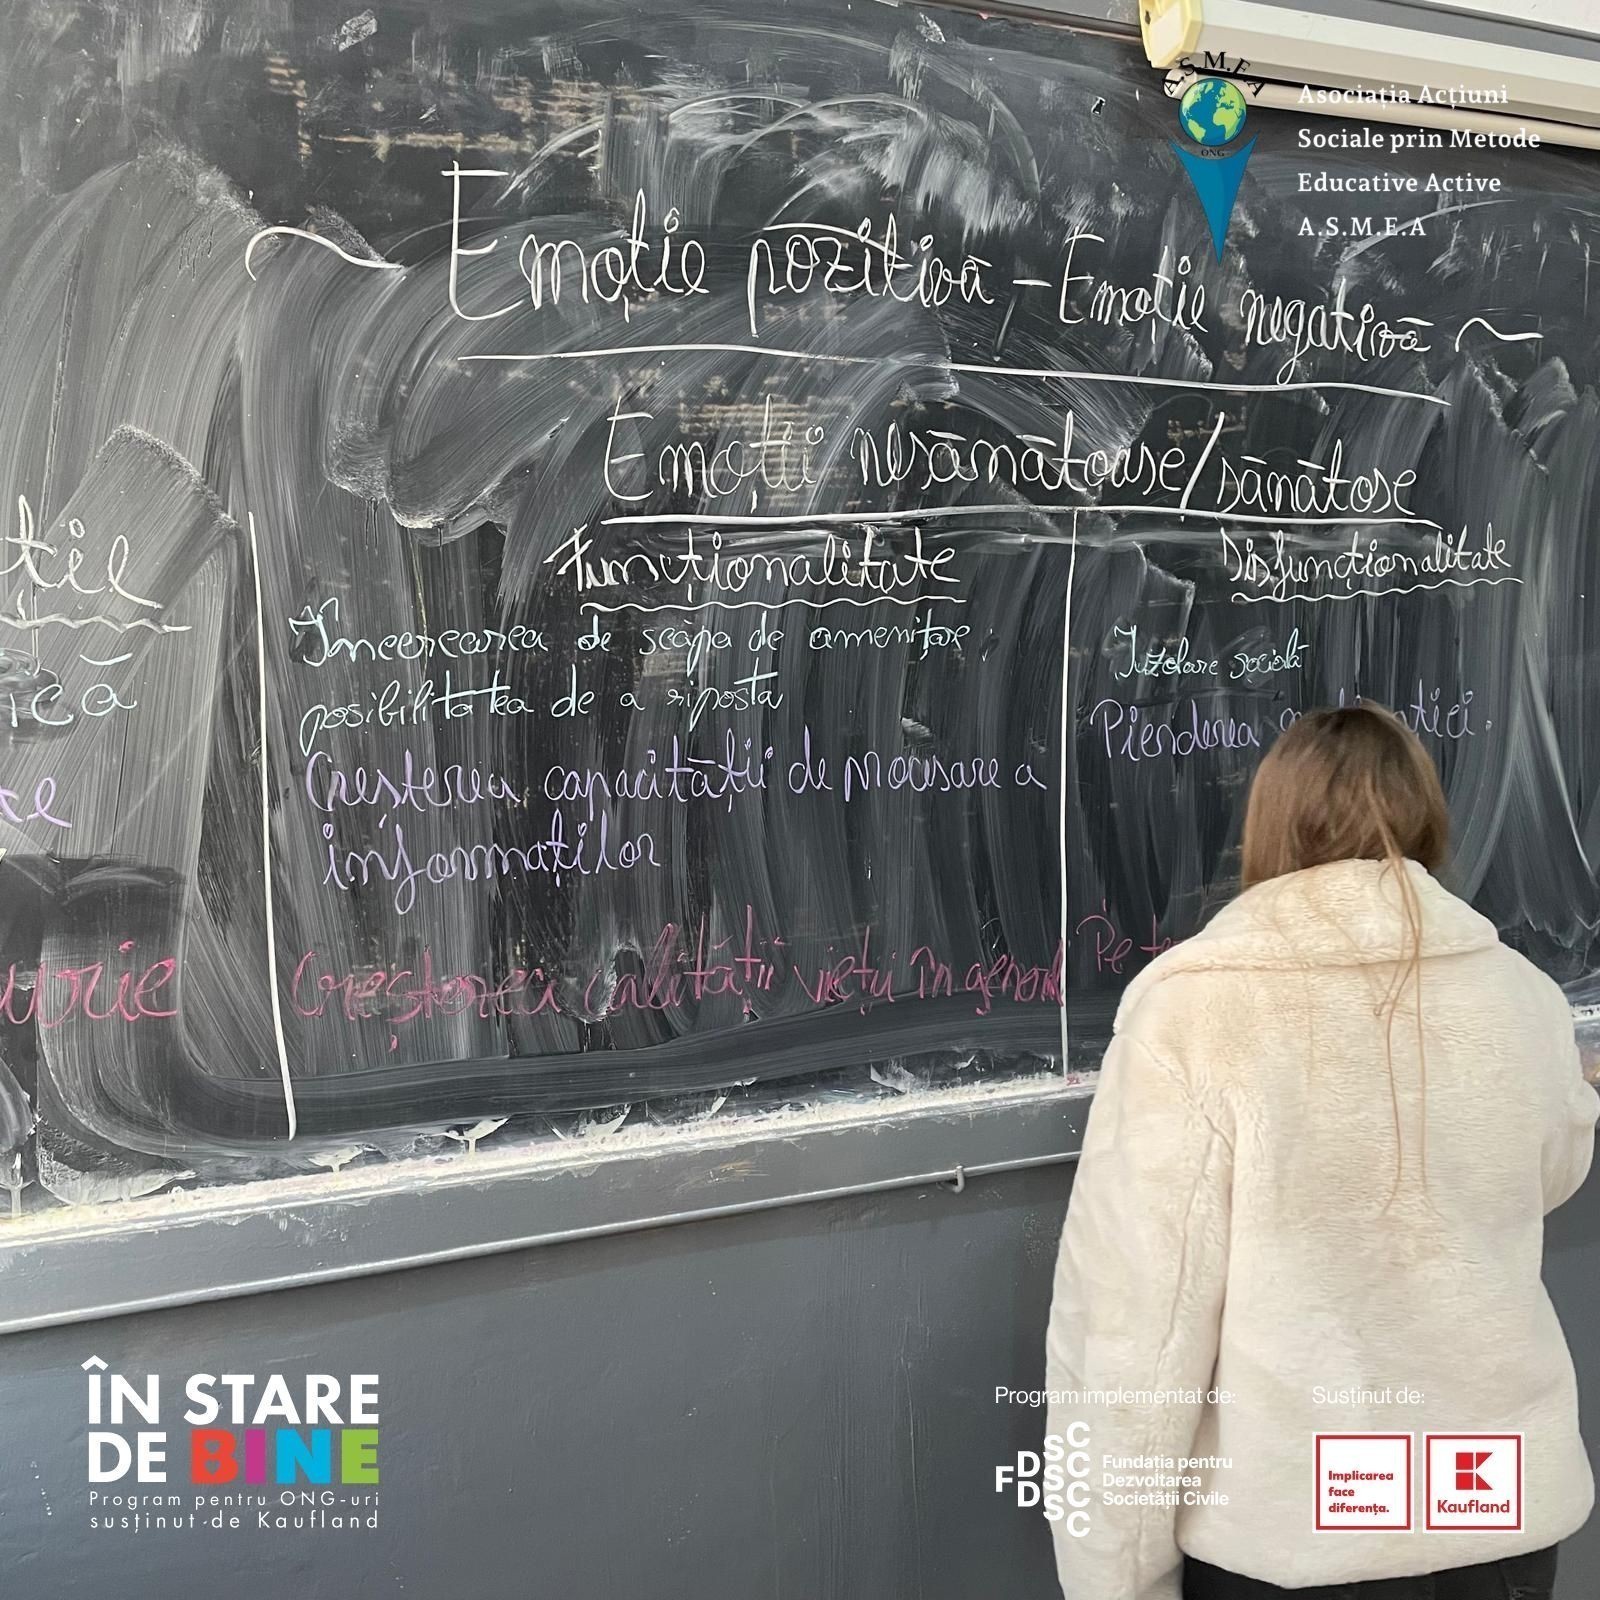 A.S.M.E.A
ONG
Asociația Acțiuni
Sociale prin Metode
Educative Active
A.S.M.E.A
~ Emoție pozitivă - Emoție negativă ~
Emoții nesănătoase/sănătose
ție
Funcționalitate
Disfuncționalitate
Încercarea de scăpa de amenițare;
posibilitatea de a riposta
Izolare socială
ică
Creșterea capacității de procesare a
informaților
Pierderea
te
Creșterea calității vieții în general
Pe te
urie
ÎN STARE
DE BINE
Program pentru ONG-uri
susținut de Kaufland
Program implementat de:
FDSC
Fundația pentru
Dezvoltarea
Societății Civile
Susținut de:
Implicarea
face
diferența.
K
Kaufland